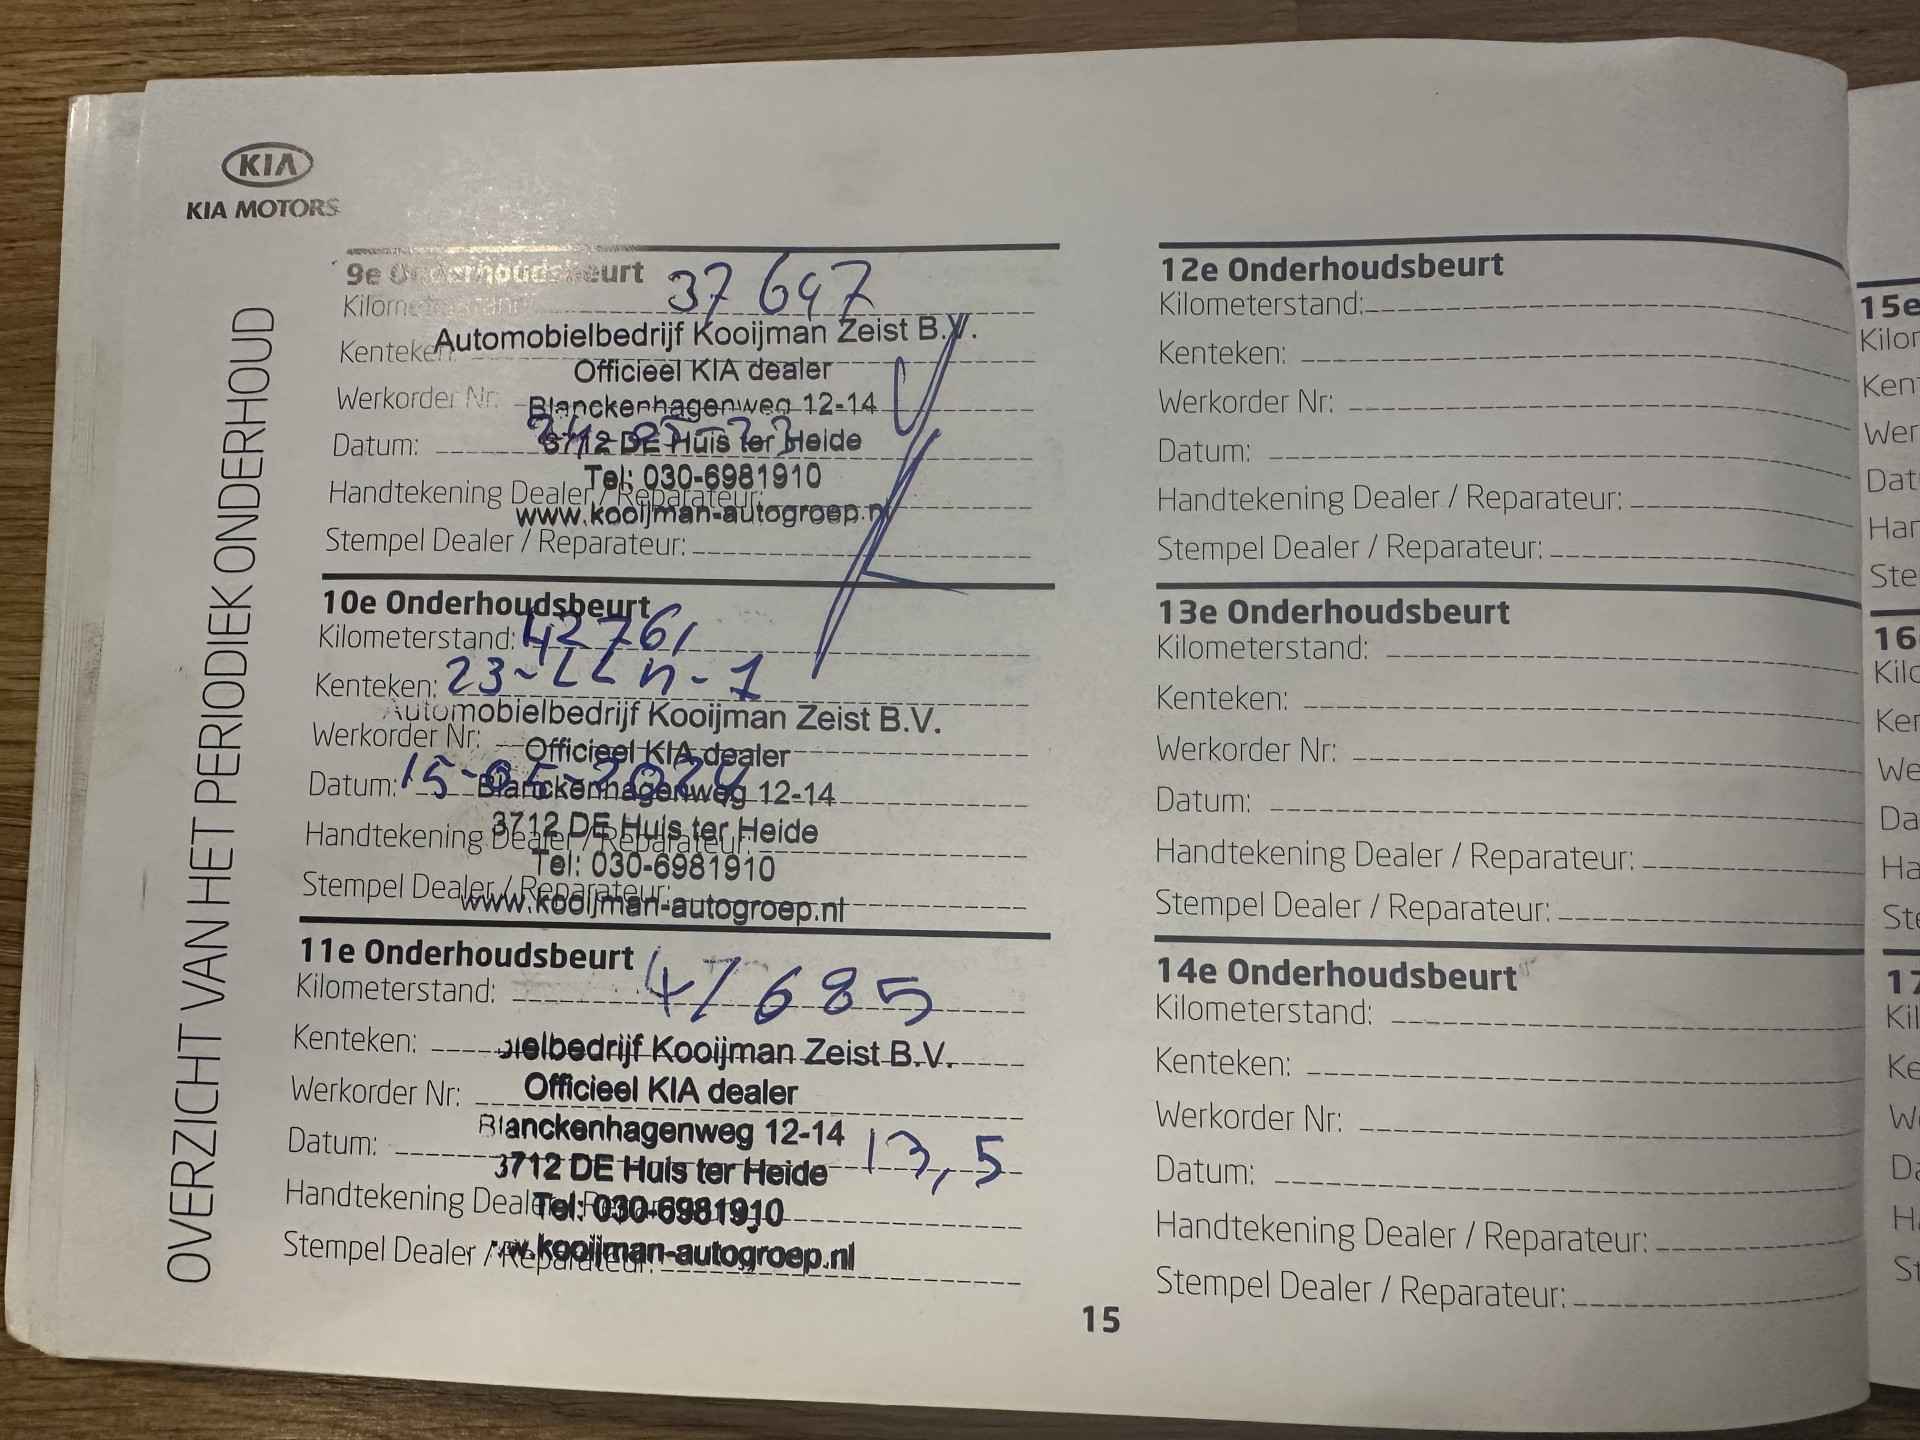 KIA
KIA MOTORS
OVERZICHT VAN HET PERIODIEK ONDERHOUD
9e Onderhoudsbeurt
Kilometerstand: 37647
Kenteken:
Automobielbedrijf Kooijman Zeist B.V.
Officieel KIA dealer
Werkorder Nr:
Blanckenhagenweg 12-14
Datum:
3712 DE Huis ter Heide
Tel: 030-6981910
Handtekening Dealer / Reparateur:
www.kooijman-autogroep.nl
Stempel Dealer / Reparateur:
10e Onderhoudsbeurt
Kilometerstand: 42761
Kenteken: 23-LL
Automobielbedrijf Kooijman Zeist B.V.
Werkorder Nr:
Officieel KIA dealer
Datum: 15-05-2024
Blanckenhagenweg 12-14
3712 DE Huis ter Heide
Handtekening Dealer / Reparateur:
Tel: 030-6981910
Stempel Dealer / Reparateur:
www.kooijman-autogroep.nl
11e Onderhoudsbeurt
Kilometerstand: 47685
Kenteken:
ielbedrijf Kooijman Zeist B.V.
Officieel KIA dealer
Werkorder Nr:
Blanckenhagenweg 12-14
Datum: 13,5
3712 DE Huis ter Heide
Handtekening Dealer / Reparateur:
Tel: 030-6981910
Stempel Dealer / Reparateur:
w.kooijman-autogroep.nl
12e Onderhoudsbeurt
Kilometerstand:
Kenteken:
Werkorder Nr:
Datum:
Handtekening Dealer / Reparateur:
Stempel Dealer / Reparateur:
13e Onderhoudsbeurt
Kilometerstand:
Kenteken:
Werkorder Nr:
Datum:
Handtekening Dealer / Reparateur:
Stempel Dealer / Reparateur:
14e Onderhoudsbeurt
Kilometerstand:
Kenteken:
Werkorder Nr:
Datum:
Handtekening Dealer / Reparateur:
Stempel Dealer / Reparateur:
15
15e
Kilor
Ken
Wer
Dat
Har
Ste
16
Kilo
Ker
We
Da
Ha
Ste
17
Kil
Ke
W
Da
H
St